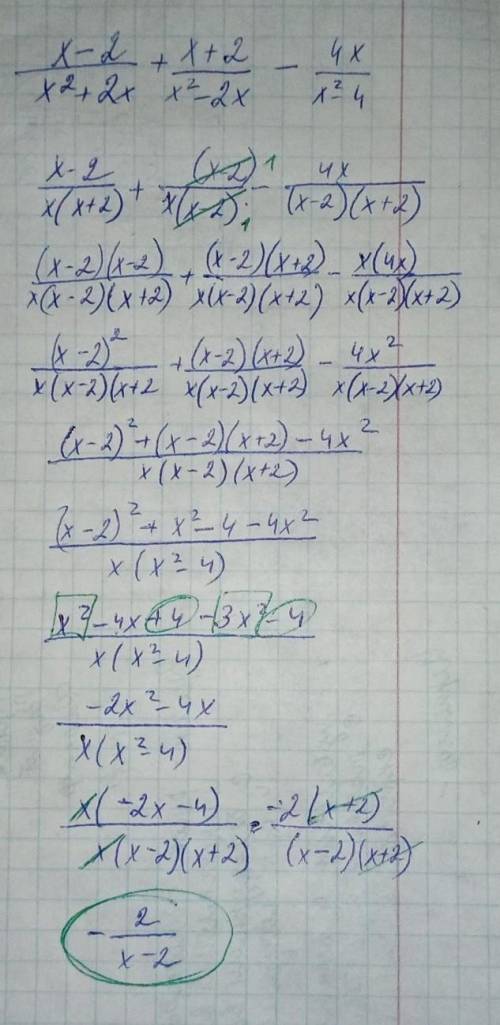 (x-2)/(x²+2x) + (x+2)/(x²-2x) - 4x/(x²-4)
(x-2)/(x(x+2)) + (x-2)/(x(x-2)) 1 1 - 4x/((x-2)(x+2))
(x-2)(x-2)/(x(x-2)(x+2)) + (x-2)(x+2)/(x(x-2)(x+2)) - x(4x)/(x(x-2)(x+2))
(x-2)²/(x(x-2)(x+2 + (x-2)(x+2)/(x(x-2)(x+2)) - 4x²/(x(x-2)(x+2))
((x-2)²+(x-2)(x+2)-4x²)/(x(x-2)(x+2))
((x-2)²+x²-4-4x²)/(x(x²-4))
(x²-4x+4-3x²-4)/(x(x²-4))
(-2x²-4x)/(x(x²-4))
x(-2x-4)/(x(x-2)(x+2)) = -2(x+2)/((x-2)(x+2))
- 2/(x-2)